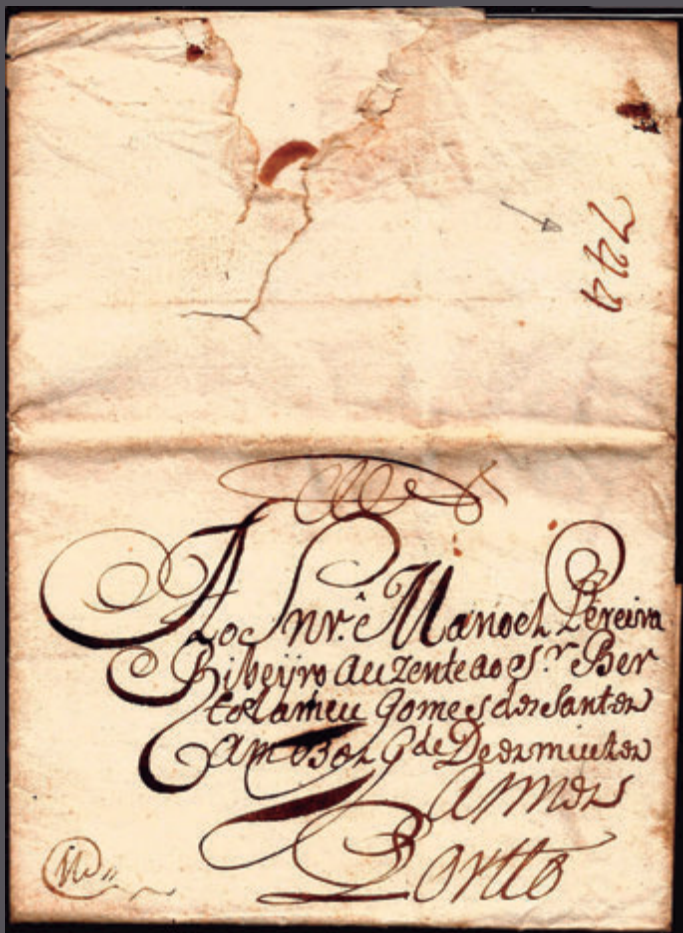 744
Ao Snr.ᵉ Manoel Pereira
Ribeyro auzente ao Sʳ. Ber
tolameu Gomes dos Santos
Amboz G de De os muitos
Annos
Portto